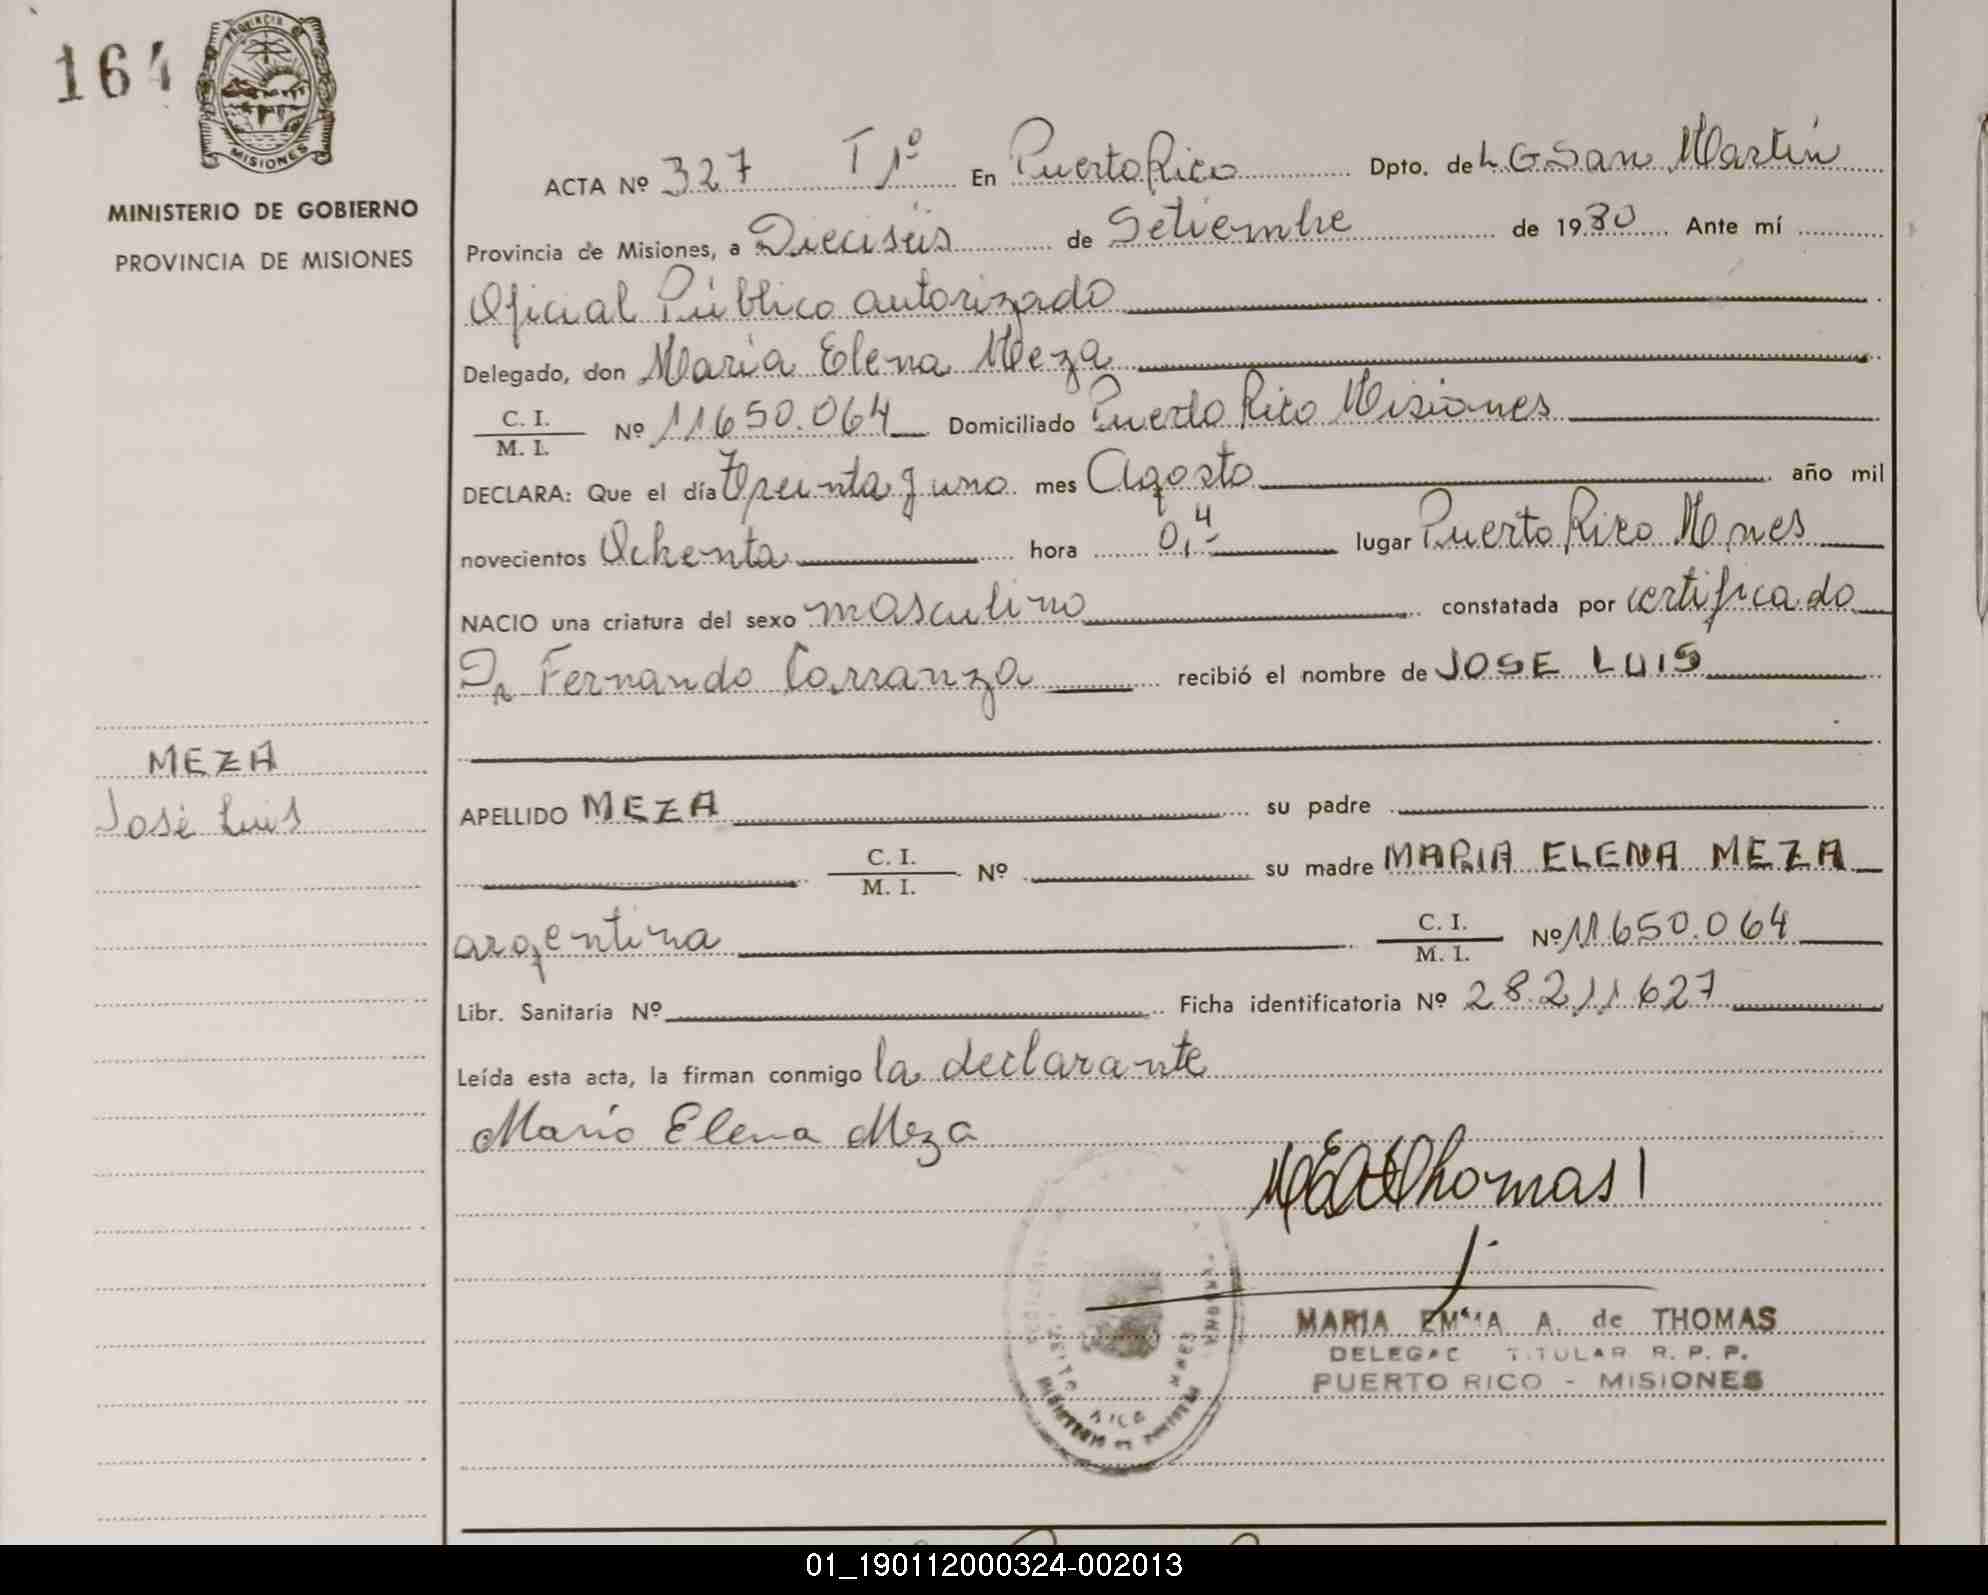 164
PROVINCIA DE
MISIONES
MINISTERIO DE GOBIERNO
PROVINCIA DE MISIONES
MEZA
José Luis
ACTA Nº 327 T 1º En Puerto Rico Dpto. de L G San Martín
Provincia de Misiones, a Dieciséis de Setiembre de 1980 Ante mí
Oficial Público autorizado
Delegado, don María Elena Meza
C. I. / M. I. Nº 11650.064 Domiciliado Puerto Rico Misiones
DECLARA: Que el día Treinta y uno mes Agosto año mil
novecientos Ochenta hora 0,4 lugar Puerto Rico Mnes
NACIO una criatura del sexo masculino constatada por certificado
Dr Fernando Carranza recibió el nombre de JOSE LUIS
APELLIDO MEZA su padre
C. I. / M. I. Nº su madre MARIA ELENA MEZA
argentina C. I. / M. I. Nº 11650.064
Libr. Sanitaria Nº Ficha identificatoria Nº 28211627
Leída esta acta, la firman conmigo la declarante
María Elena Meza
MEA de Thomas
MARIA EMMA A. de THOMAS
DELEGAD TITULAR R. P. P.
PUERTO RICO - MISIONES
PUERTO RICO
01_190112000324-002013